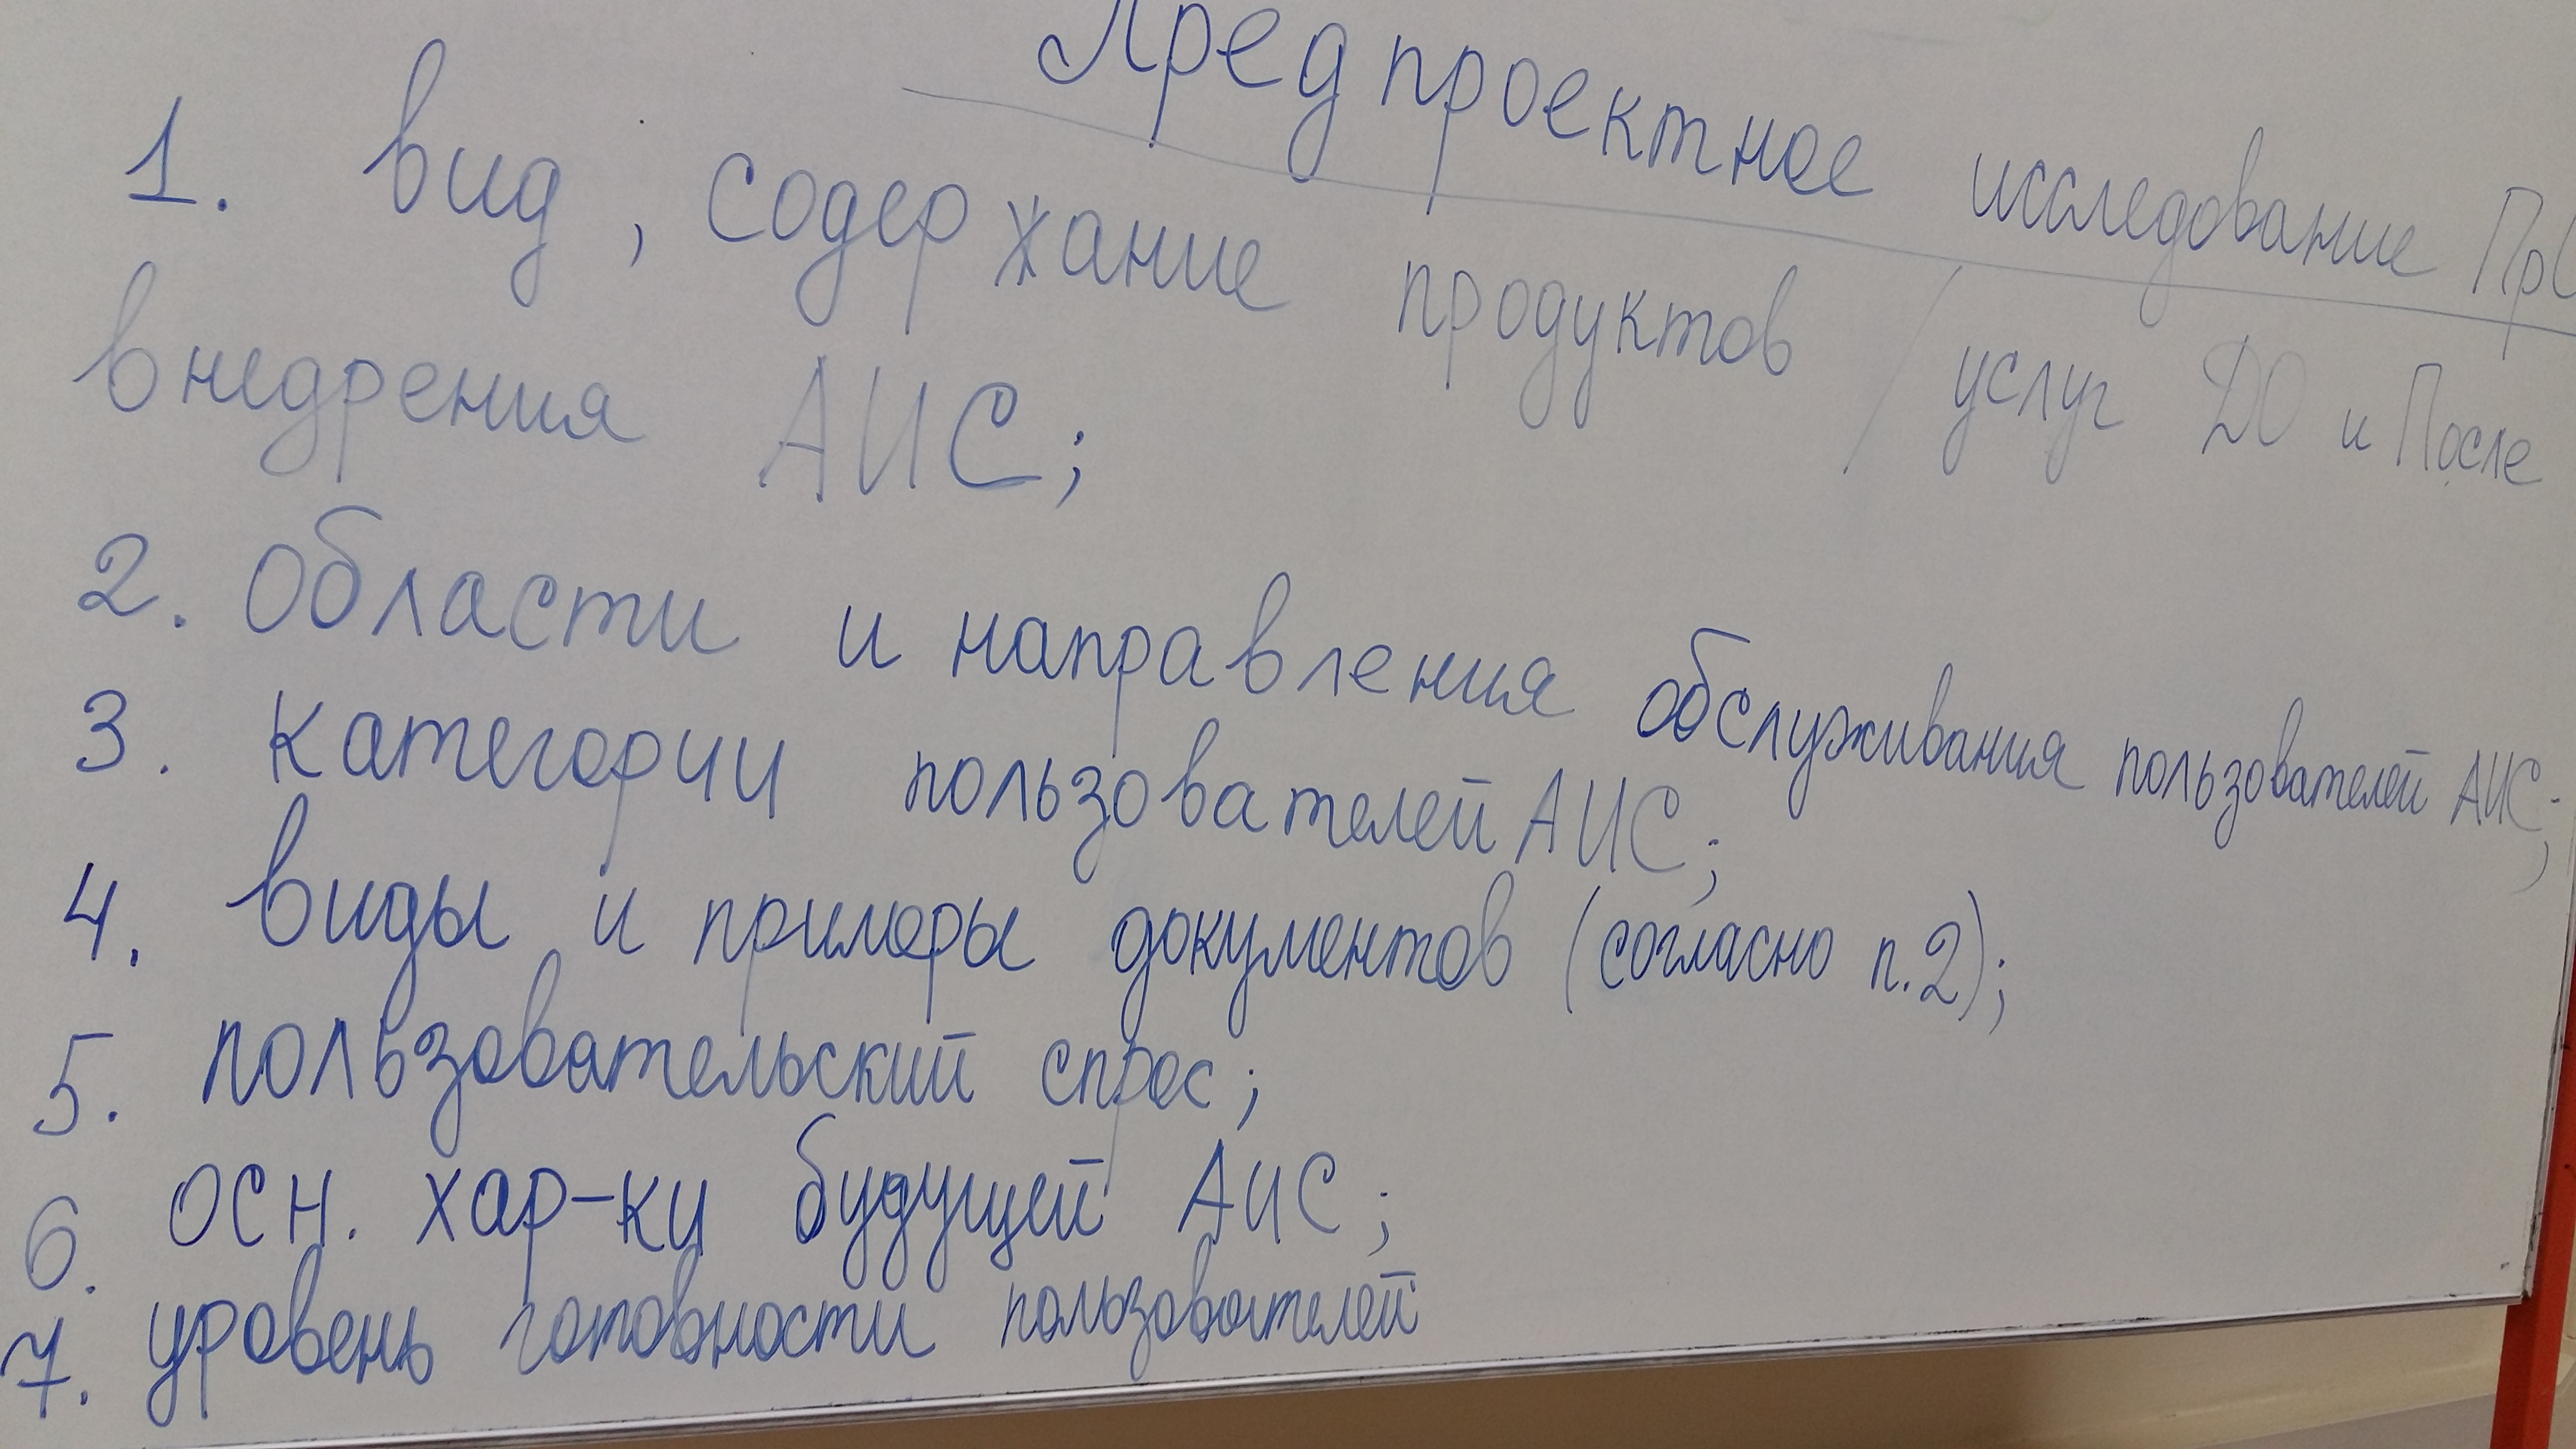 Предпроектное исследование
1. вид, содержание продуктов / услуг ДО и После
внедрения АИС;
2. Области и направления обслуживания пользователей АИС;
3. категории пользователей АИС;
4. виды и примеры документов (согласно п.2);
5. пользовательский спрос;
6. осн. хар-ки будущей АИС;
7. уровень готовности пользователей